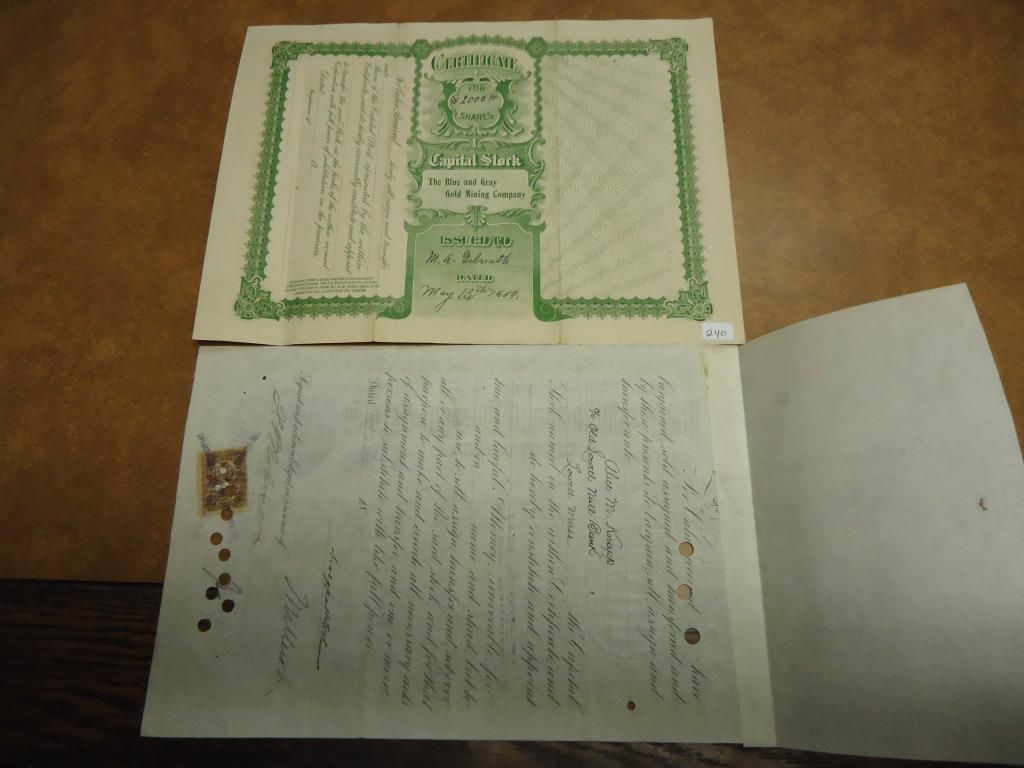 CERTIFICATE
FOR
2000
SHARES
OF THE
Capital Stock
The Blue and Gray
Gold Mining Company
ISSUED TO
M. A. Gilreath
DATED
May 13th 1909.
hereby sell, assign and transfer
unto
Shares of the Capital Stock represented by the within
Certificate, and do hereby irrevocably constitute and appoint
to transfer the said Stock on the books of the within named
Corporation with full power of substitution in the premises.
Dated
In presence of
240
For Value Received have
bargained, sold, assigned and transferred and
by these presents do bargain, sell, assign and
transfer unto
% Old Lowell Natl Bank
Lowell Mass
the Capital
Stock named in the within Certificate and
do hereby constitute and appoint
true and lawful Attorney, irrevocable for
and in name and stead but to
use, to sell, assign, transfer and set over
all or any part of the said stock, and for that
purpose to make and execute all necessary acts
of assignment and transfer, and one or more
persons to substitute with like full power.
Dated
Signed and acknowledged in presence of